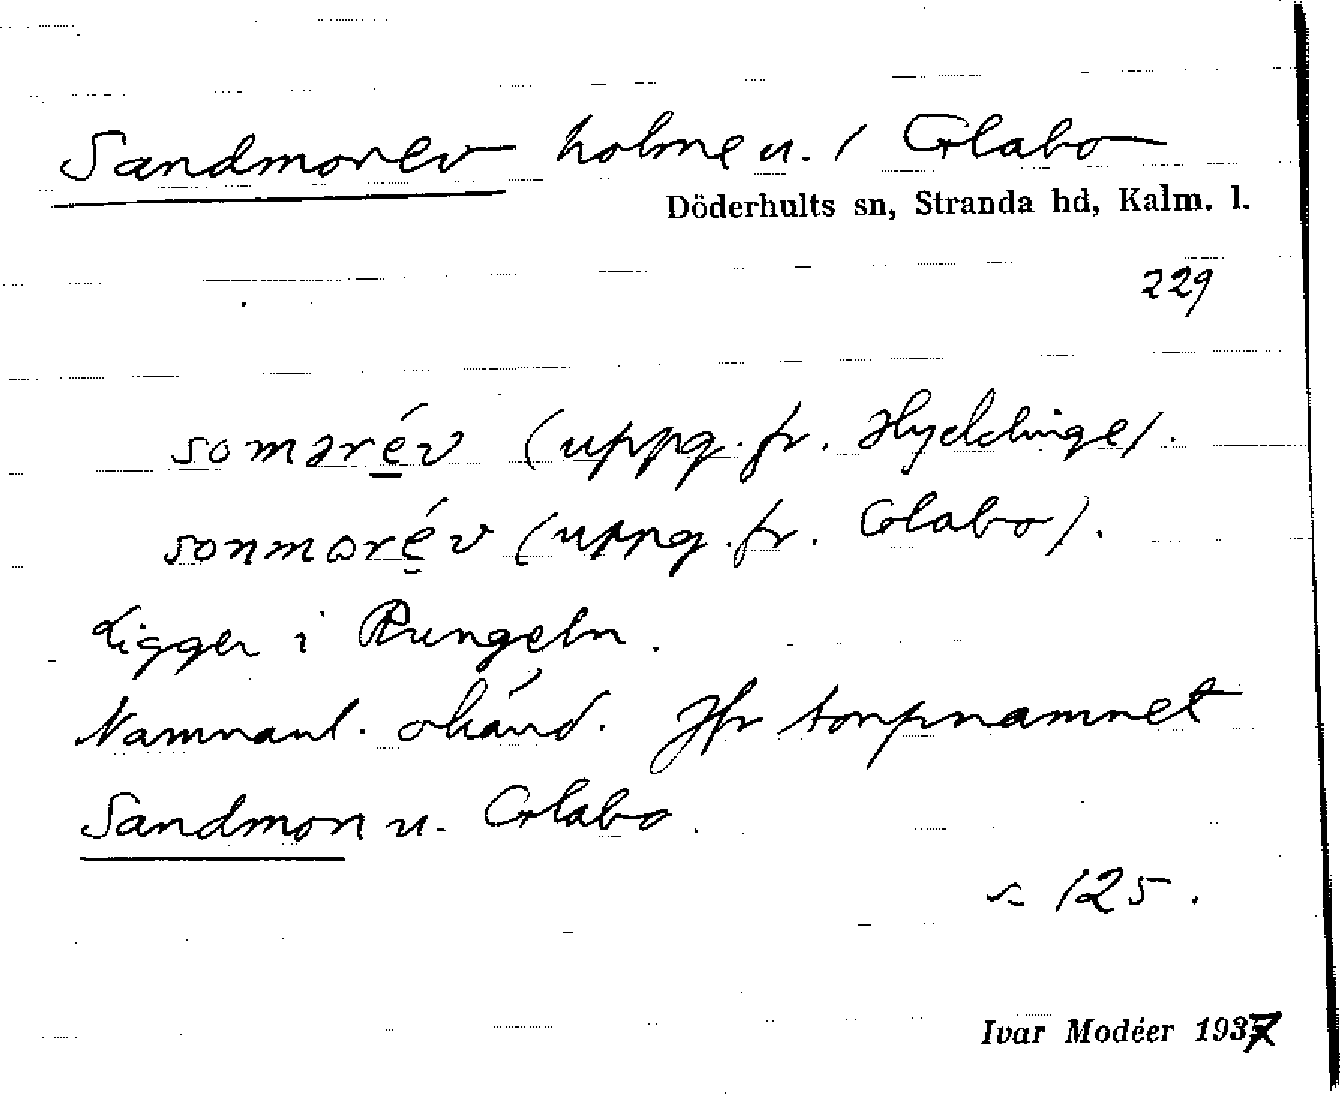 Sandmorev holme u. / Glabo
Döderhults sn, Stranda hd, Kalm. l.
229
somǝrév (uppg. fr. Hycklinge).
sonmorév (uppg. fr. Glabo).
Ligger i Rungeln.
Namnanl. okänd. Jfr torpnamnet
Sandmon u. Glabo.
125.
Ivar Modéer 1937